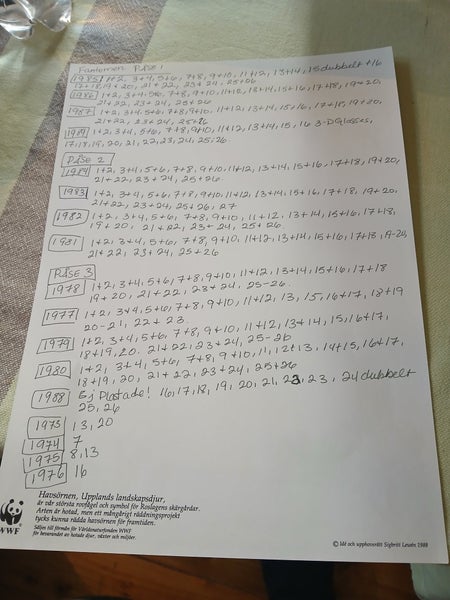 Fantomen Påse 1
1985 1+2, 3+4, 5+6, 7+8, 9+10, 11+12, 13+14, 15 dubbelt +16
17+18, 19+20, 21+22, 23+24, 25+26
1986 1+2, 3+4, 5+6, 7+8, 9+10, 11+12, 13+14, 15+16, 17+18, 19+20,
21+22, 23+24, 25+26
1987 1+2, 3+4, 5+6, 7+8, 9+10, 11+12, 13+14, 15+16, 17+18, 19+20,
21+22, 23+24, 25+26
1989 1+2, 3+4, 5+6, 7+8, 9+10, 11+12, 13+14, 15, 16 3-D Glasses,
17, 18, 19, 20, 21, 22, 23, 24, 25, 26
PÅSE 2
1984 1+2, 3+4, 5+6, 7+8, 9+10, 11+12, 13+14, 15+16, 17+18, 19+20,
21+22, 23+24, 25+26
1983 1+2, 3+4, 5+6, 7+8, 9+10, 11+12, 13+14, 15+16, 17+18, 19+20,
21+22, 23+24, 25+26, 27
1982 1+2, 3+4, 5+6, 7+8, 9+10, 11+12, 13+14, 15+16, 17+18,
19+20, 21+22, 23+24, 25+26
1981 1+2, 3+4, 5+6, 7+8, 9+10, 11+12, 13+14, 15+16, 17+18, 19-20,
21+22, 23+24, 25+26
PÅSE 3
1978 1+2, 3+4, 5+6, 7+8, 9+10, 11+12, 13+14, 15+16, 17+18
19+20, 21+22, 23+24, 25-26.
1977 1+2, 3+4, 5+6, 7+8, 9+10, 11+12, 13, 15, 16+17, 18+19
20-21, 22+23
1979 1+2, 3+4, 5+6, 7+8, 9+10, 11+12, 13+14, 15, 16+17,
18+19, 20. 21+22, 23+24, 25-26
1980 1+2, 3+4, 5+6, 7+8, 9+10, 11, 12+13, 14+15, 16+17,
18+19, 20, 21+22, 23+24, 25+26
1988 Ej Plastade! 16, 17, 18, 19, 20, 21, 22, 23, 24 dubbelt
25, 26
1973 13, 20
1974 7
1975 8, 13
1976 16
Havsörnen, Upplands landskapsdjur,
är vår största rovfågel och symbol för Roslagens skärgårdar.
Arten är hotad, men ett mångårigt räddningsprojekt
tycks kunna rädda havsörnen för framtiden.
Säljes till förmån för Världsnaturfonden WWF
för bevarandet av hotade djur, växter och miljöer.
WWF
© Idé och upphovsrätt Sigbritt 1988